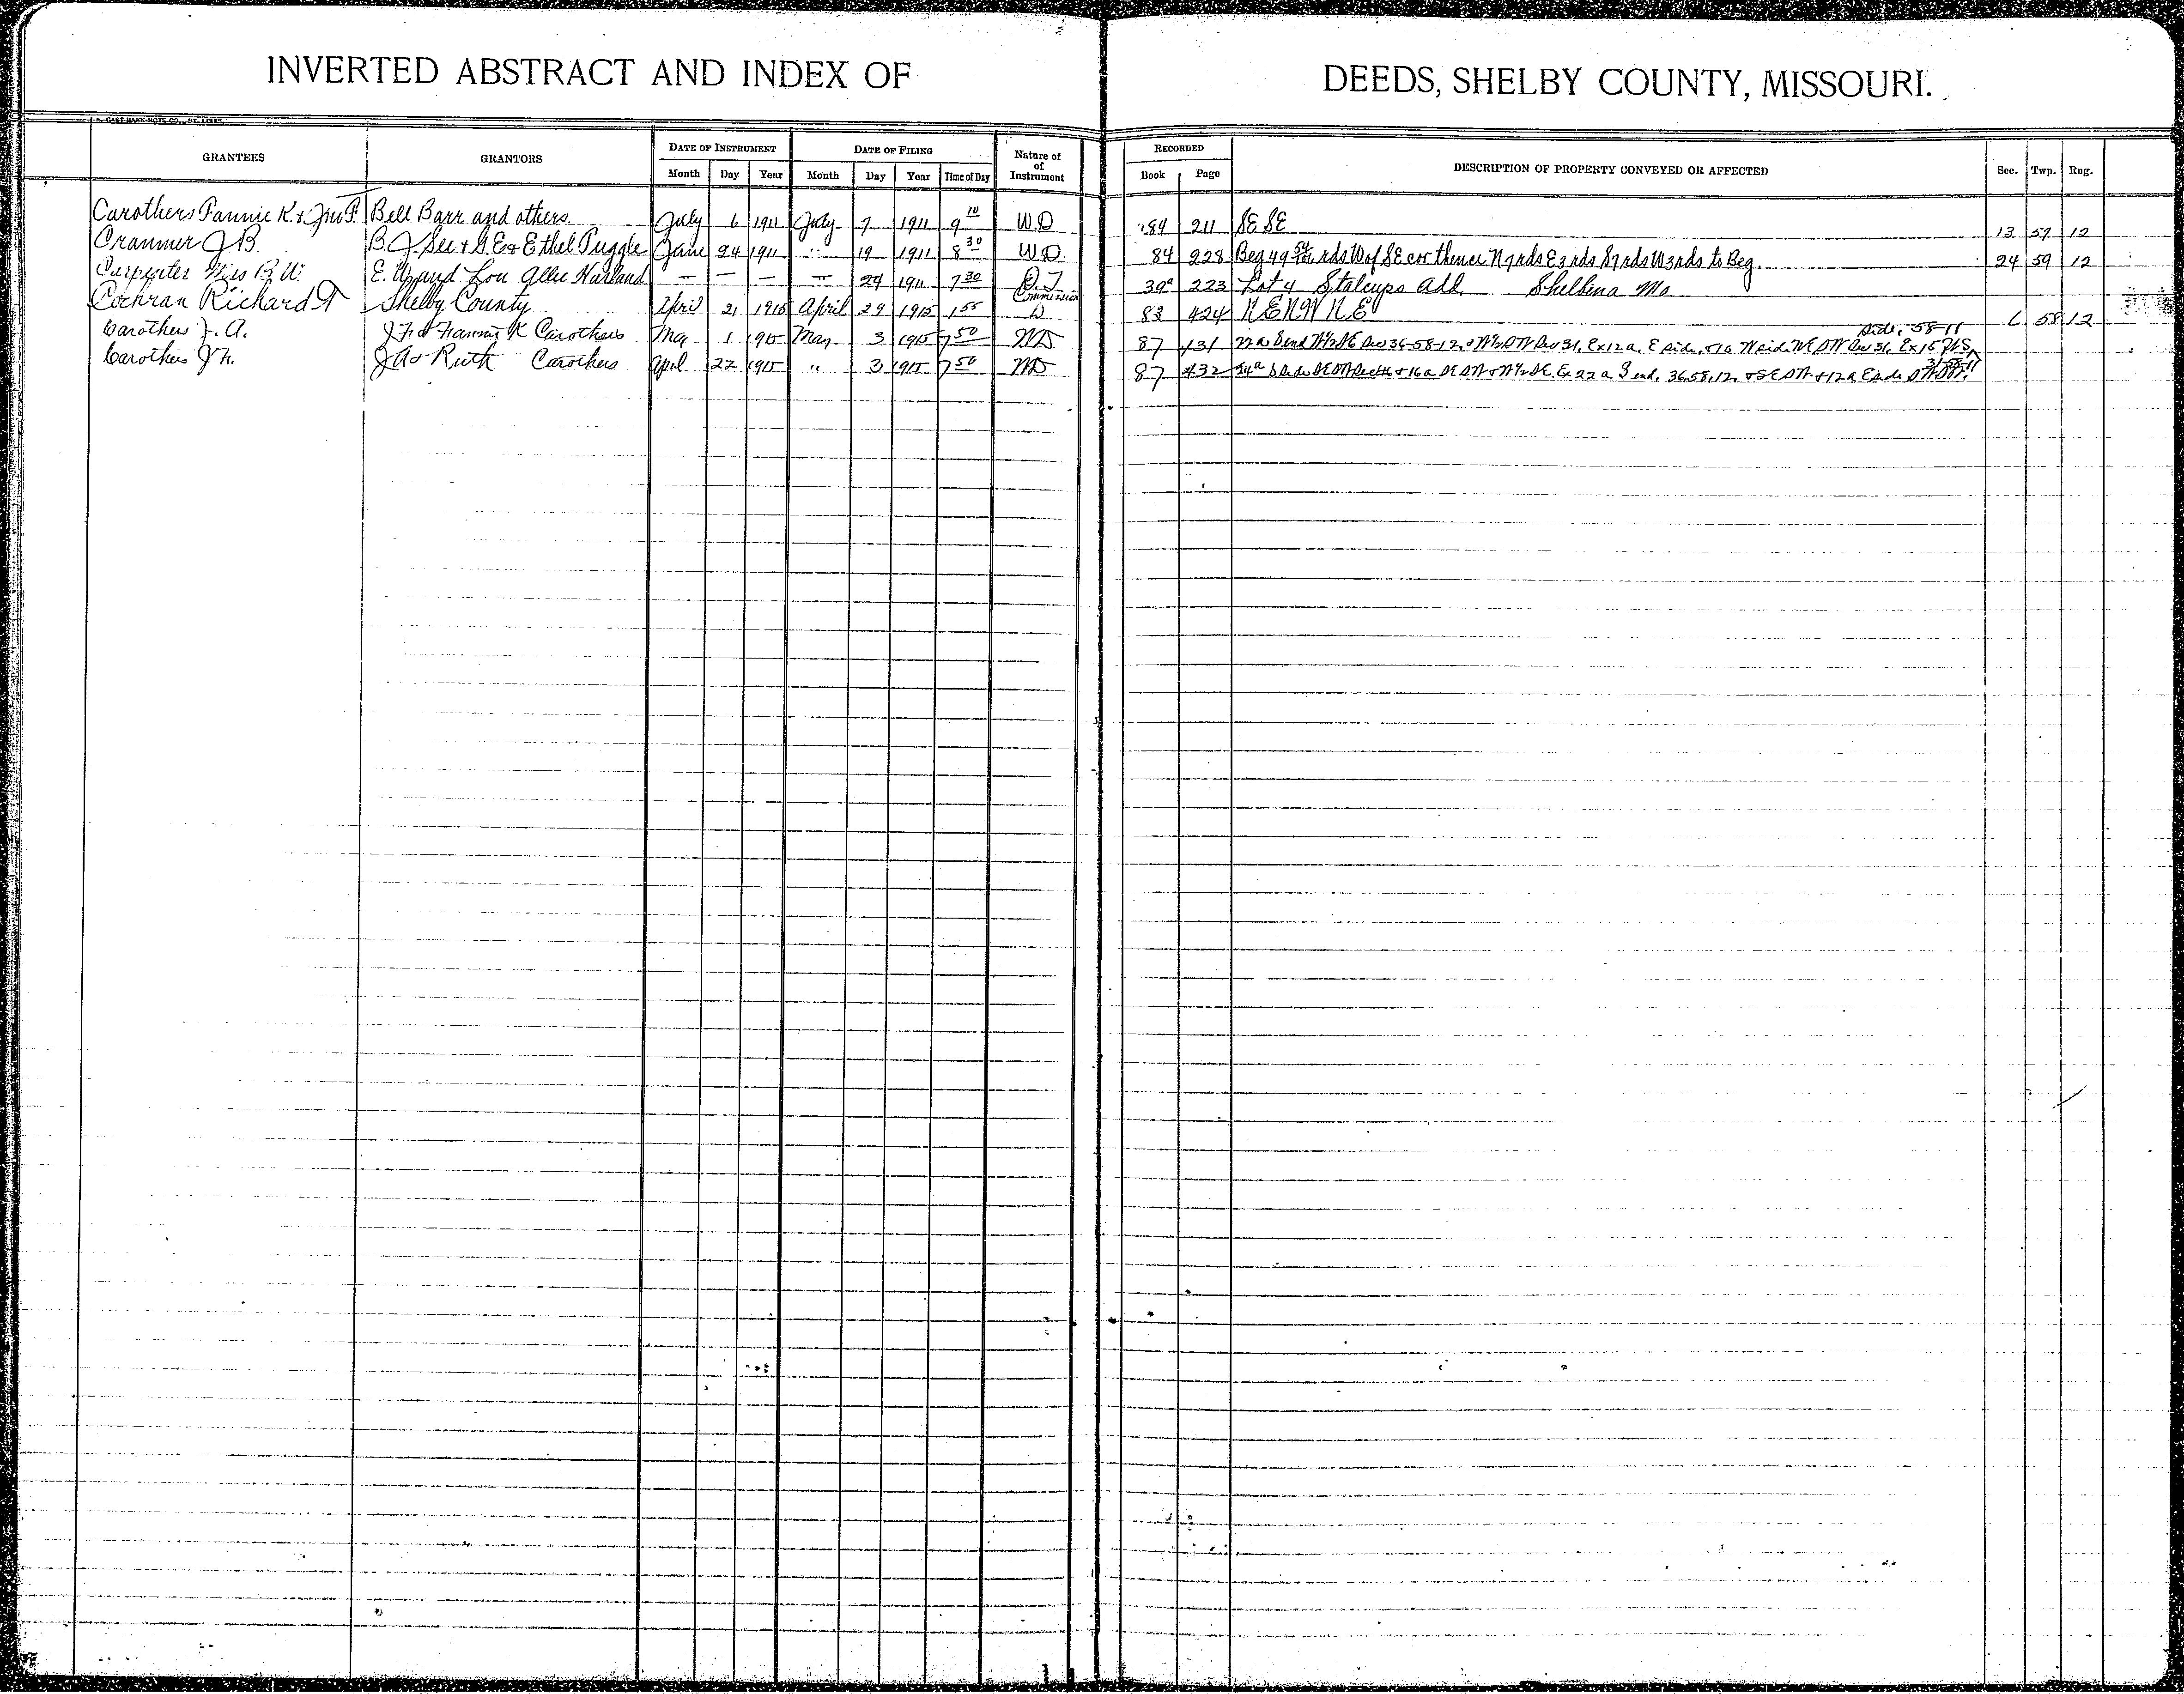 INVERTED ABSTRACT AND INDEX OF DEEDS, SHELBY COUNTY, MISSOURI.
GRANTEES GRANTORS DATE OF INSTRUMENT DATE OF FILING Nature of of Instrument RECORDED DESCRIPTION OF PROPERTY CONVEYED OR AFFECTED Sec. Twp. Rng.
Month Day Year Month Day Year Time of Day Book Page
Carothers Fannie K. & Jno F. Bell Barr and others July 6 1911 July 7 1911 9 10 W.D 84 211 SE SE 13 57 12
Cranmer J B B. J. See & G. E & Ethel Puggle June 24 1911 " 19 1911 8 30 W.D. 84 228 Beg 49 rds W of SE cor thence N 7 rds E 3 rds S 7 rds W 3 rds to Beg. 24 59 12
Carpenter Miss B. W. E. W and Lou Allee Harland — — — — 29 1911 7 30 D. T 39a 223 Lot 4 Stalcups Add. Shelbina Mo
Cochran Richard T Shelby County April 21 1915 April 29 1915 1 55 Commission D 83 424 N E N W N E 6 58 12
Carothers J. A. J F & Fannie K Carothers May 1 1915 May 3 1915 7 50 WD 87 431 22 a S end W½ SE Sec 36-58-12, & W½ SW Sec 31, Ex 12 a. E side, & 10 W side NE SW Sec 31, Ex 15 side, 58-11
Carothers J F. J A & Ruth Carothers April 22 1915 " 3 1915 7 50 WD 87 432 SE SW & W½ SE. Ex 22 a S end, 36.58.12, & SE SW & 12 a E side 31-58-11